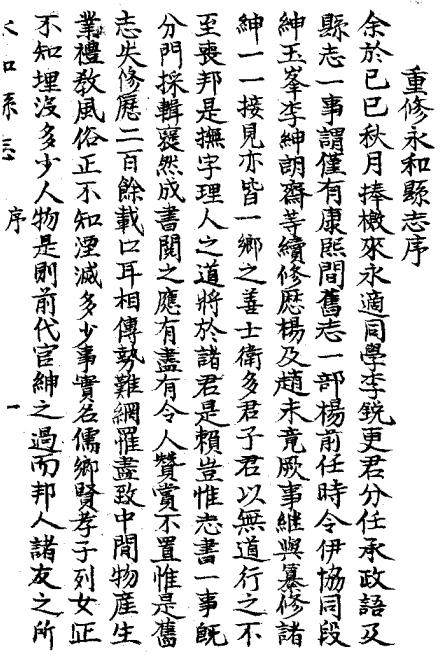 重修永和縣志序
余於己巳秋月捧檄來永適同學李銳更君分任承政語及
縣志一事謂僅有康熙間舊志一部楊前任時令伊協同段
紳玉峯李紳朗齋等續修歷楊及趙未竟厥事継與纂修諸
紳一一接見亦皆一鄉之善士衛多君子君以無道行之不
至喪邦是撫字理人之道將於諸君是賴豈惟志書一事旣
分門採輯裒然成書閱之應有盡有令人贊賞不置惟是舊
志失修歷二百餘載口耳相傳勢難網羅盡致中間物産生
業禮教風俗正不知湮滅多少事實名儒鄉賢孝子列女正
不知埋沒多少人物是則前代官紳之過而邦人諸友之所
永和縣志 序 一